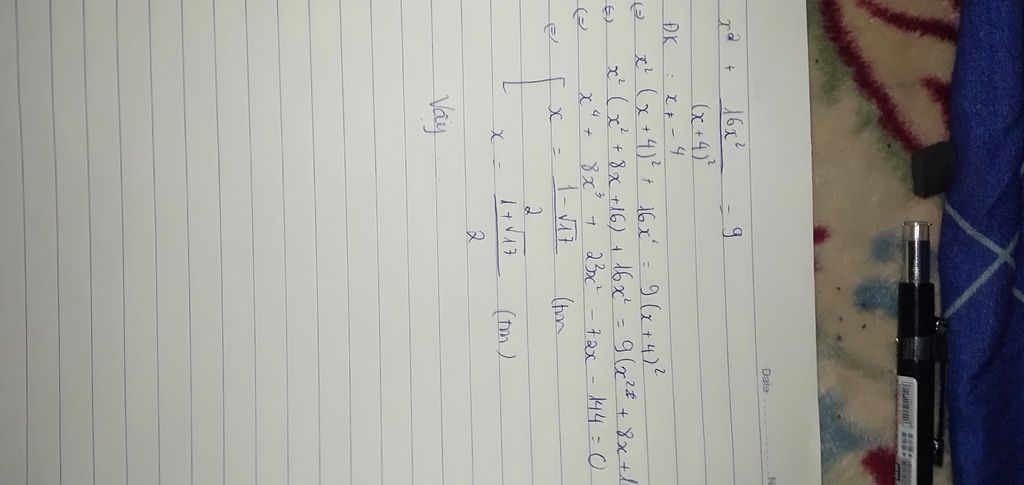 Date ........... N
x² + 16x²/(x+4)² = 9
ĐK : x ≠ -4
(=) x² (x+4)² + 16x² = 9(x+4)²
(=) x² (x² + 8x + 16) + 16x² = 9(x² + 8x + 1
(=) x⁴ + 8x³ + 23x² - 72x - 144 = 0
(=) [ x = (1-√17)/2 (tm
x = (1+√17)/2 (tm)
Vậy